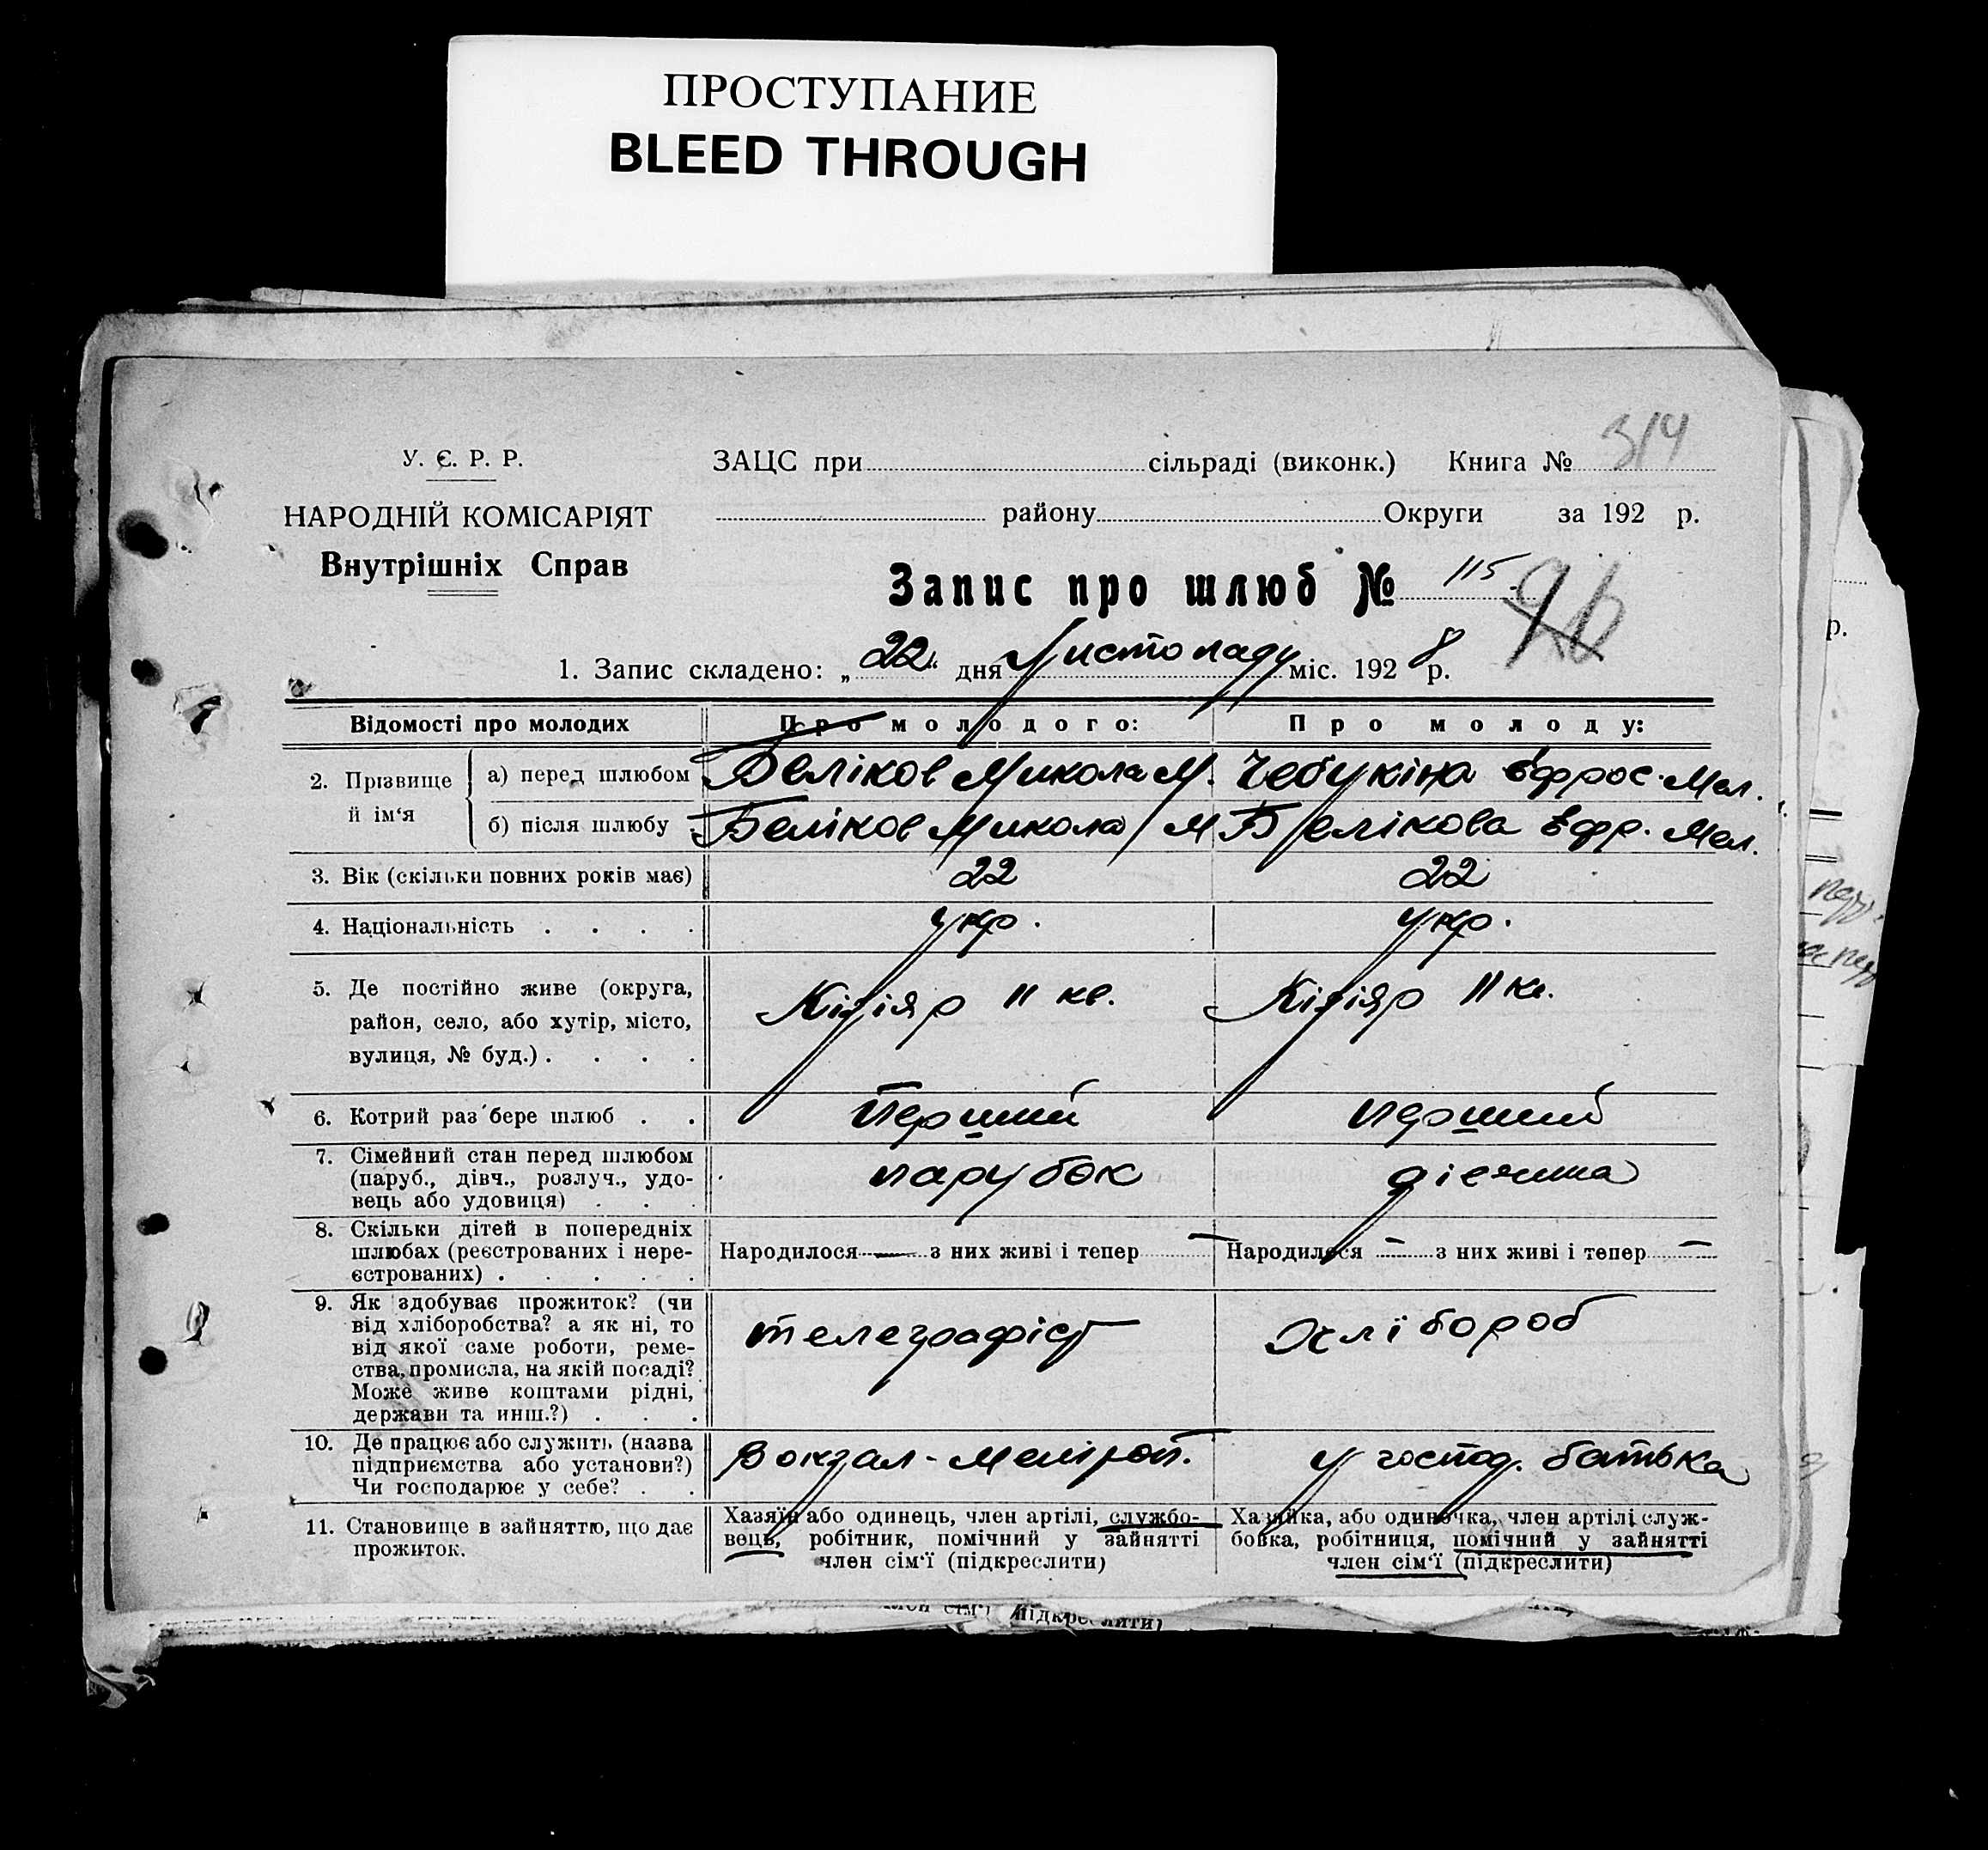 ПРОСТУПАНИЕ
BLEED THROUGH
314
У. Є. Р. Р.
ЗАЦС при сільраді (виконк.) Книга №
НАРОДНІЙ КОМІСАРІЯТ
району Округи за 192 р.
Внутрішніх Справ
Запис про шлюб № 115
96
1. Запис складено: „22“ дня Листопаду міс. 1928 р.
Відомості про молодих
Про молодого:
Про молоду:
2. Прізвище й ім‘я
а) перед шлюбом
Беліков Микола М.
Чебукіна Єфрос. Мел.
б) після шлюбу
Беліков Микола М
Белікова Єфр. Мел.
3. Вік (скільки повних років має)
22
22
4. Національність . . . .
укр.
укр.
5. Де постійно живе (округа,
район, село, або хутір, місто,
вулиця, № буд.) . . . .
Кізіяр II кв.
Кізіяр II кв.
6. Котрий раз бере шлюб . .
Перший
перший
7. Сімейний стан перед шлюбом
(паруб., дівч., розлуч., удо-
вець або удовиця) . . .
парубок
дівчина
8. Скільки дітей в попередніх
шлюбах (реєстрованих і нере-
єстрованих) . . . . .
Народилося — з них живі і тепер —
Народилося — з них живі і тепер —
9. Як здобуває прожиток? (чи
від хліборобства? а як ні, то
від якої саме роботи, реме-
ства, промисла, на якій посаді?
Може живе коштами рідні,
держави та инш.?) . . .
телеграфіст
Хлібороб
10. Де працює або служить (назва
підприємства або установи?)
Чи господарює у себе? . .
Вокзал - Мелітоп.
у господ. батька
11. Становище в зайняттю, що дає
прожиток.
Хазяїн або одинець, член артілі, службо-
вець, робітник, помічний у зайнятті
член сім‘ї (підкреслити)
Хазяйка, або одиночка, член артілі служ-
бовка, робітниця, помічний у зайнятті
член сім‘ї (підкреслити)
член сім‘ї (підкреслити)